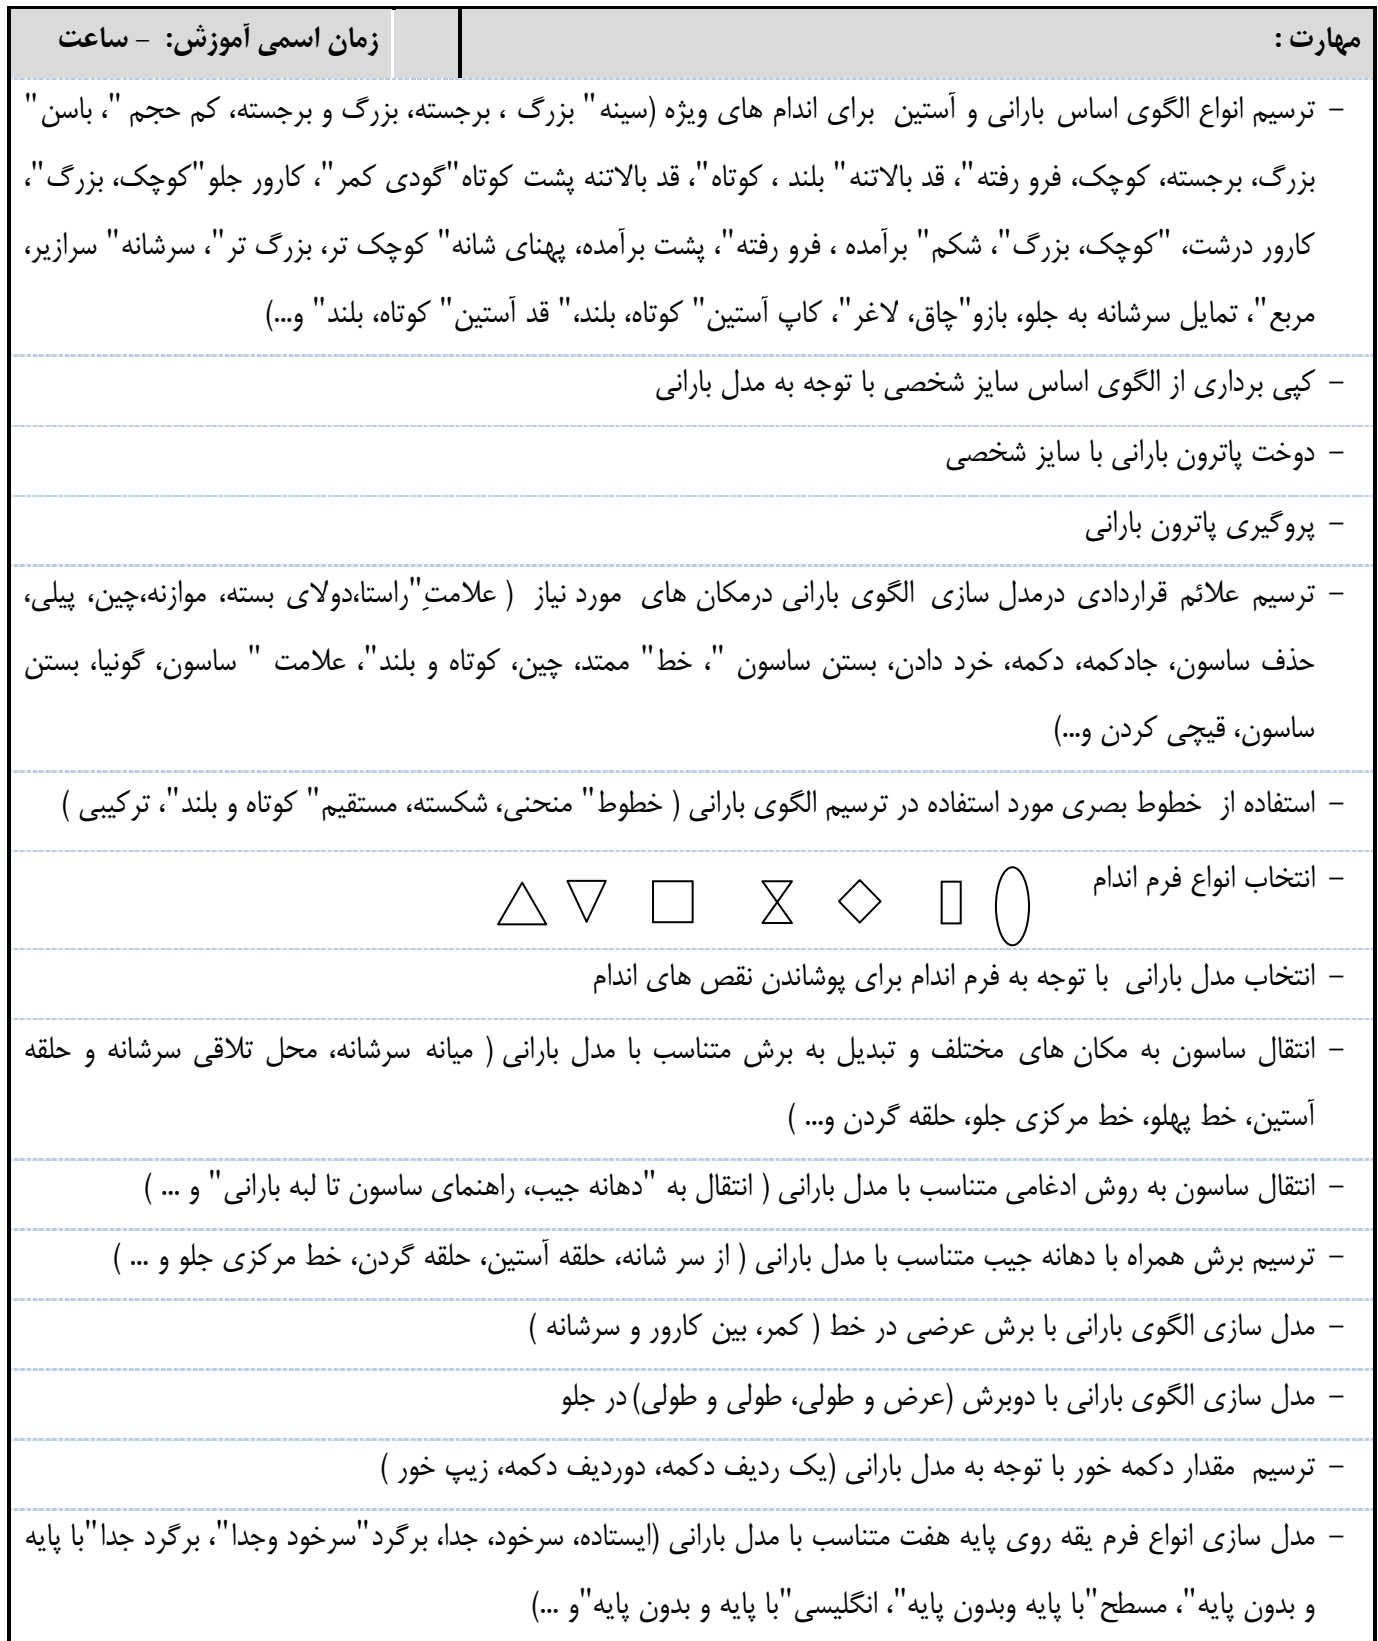 مهارت :
زمان اسمی آموزش: - ساعت
- ترسیم انواع الگوی اساس بارانی و آستین برای اندام های ویژه (سینه" بزرگ ، برجسته، بزرگ و برجسته، کم حجم "، باسن"
بزرگ، برجسته، کوچک، فرو رفته"، قد بالاتنه" بلند ، کوتاه"، قد بالاتنه پشت کوتاه"گودی کمر"، کارور جلو"کوچک، بزرگ"،
کارور درشت، "کوچک، بزرگ"، شکم" برآمده ، فرو رفته"، پشت برآمده، پهنای شانه" کوچک تر، بزرگ تر"، سرشانه" سرازیر،
مربع"، تمایل سرشانه به جلو، بازو"چاق، لاغر"، کاپ آستین" کوتاه، بلند،" قد آستین" کوتاه، بلند" و...)
- کپی برداری از الگوی اساس سایز شخصی با توجه به مدل بارانی
- دوخت پاترون بارانی با سایز شخصی
- پروگیری پاترون بارانی
- ترسیم علائم قراردادی درمدل سازی الگوی بارانی درمکان های مورد نیاز ( علامتِ"راستا،دولای بسته، موازنه،چین، پیلی،
حذف ساسون، جادکمه، دکمه، خرد دادن، بستن ساسون "، خط" ممتد، چین، کوتاه و بلند"، علامت " ساسون، گونیا، بستن
ساسون، قیچی کردن و...)
- استفاده از خطوط بصری مورد استفاده در ترسیم الگوی بارانی ( خطوط" منحنی، شکسته، مستقیم" کوتاه و بلند"، ترکیبی )
- انتخاب انواع فرم اندام
- انتخاب مدل بارانی با توجه به فرم اندام برای پوشاندن نقص های اندام
- انتقال ساسون به مکان های مختلف و تبدیل به برش متناسب با مدل بارانی ( میانه سرشانه، محل تلاقی سرشانه و حلقه
آستین، خط پهلو، خط مرکزی جلو، حلقه گردن و... )
- انتقال ساسون به روش ادغامی متناسب با مدل بارانی ( انتقال به "دهانه جیب، راهنمای ساسون تا لبه بارانی" و ... )
- ترسیم برش همراه با دهانه جیب متناسب با مدل بارانی ( از سر شانه، حلقه آستین، حلقه گردن، خط مرکزی جلو و ... )
- مدل سازی الگوی بارانی با برش عرضی در خط ( کمر، بین کارور و سرشانه )
- مدل سازی الگوی بارانی با دوبرش (عرض و طولی، طولی و طولی) در جلو
- ترسیم مقدار دکمه خور با توجه به مدل بارانی (یک ردیف دکمه، دوردیف دکمه، زیپ خور )
- مدل سازی انواع فرم یقه روی پایه هفت متناسب با مدل بارانی (ایستاده، سرخود، جدا، برگرد"سرخود وجدا"، برگرد جدا"با پایه
و بدون پایه"، مسطح"با پایه وبدون پایه"، انگلیسی"با پایه و بدون پایه"و ...)